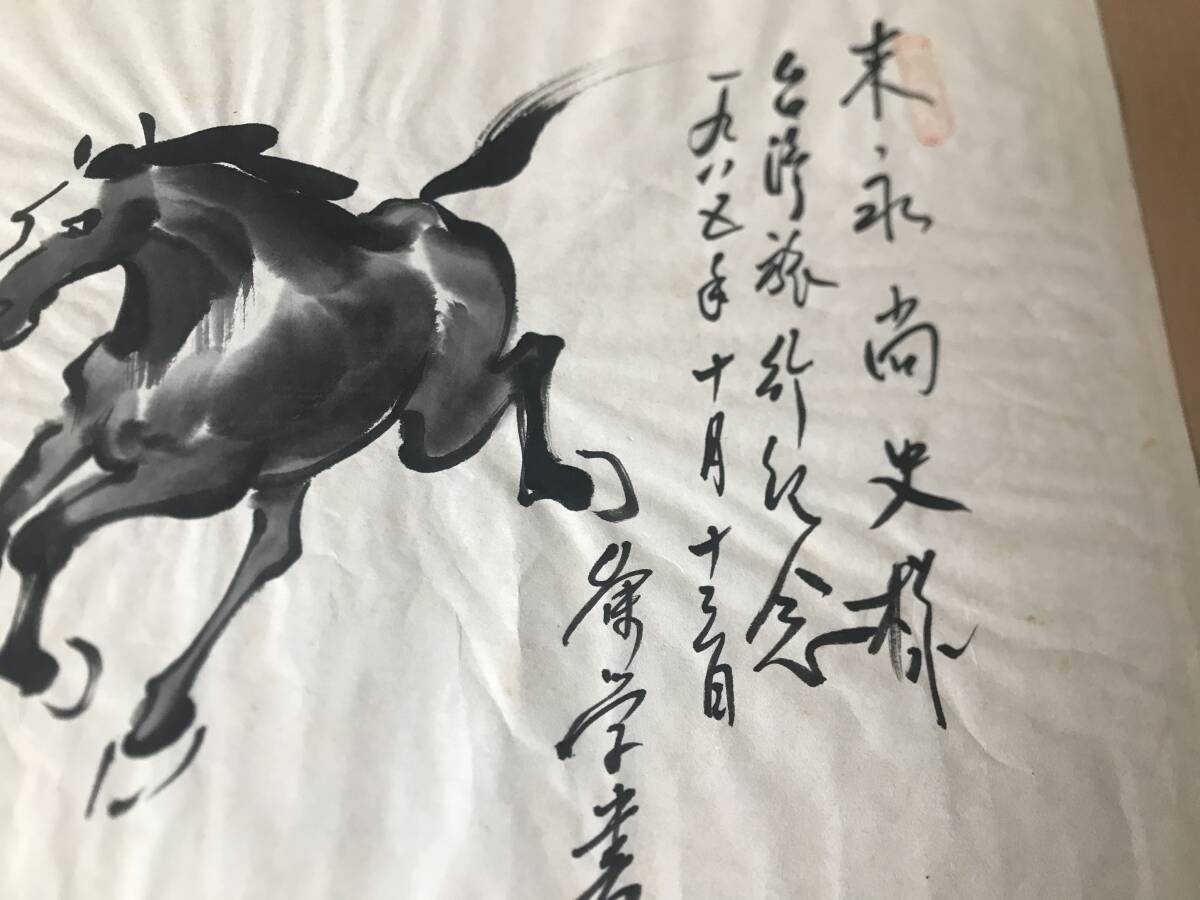 末永尚史様
台湾旅行紀念
一九八五年十月十三日
学書